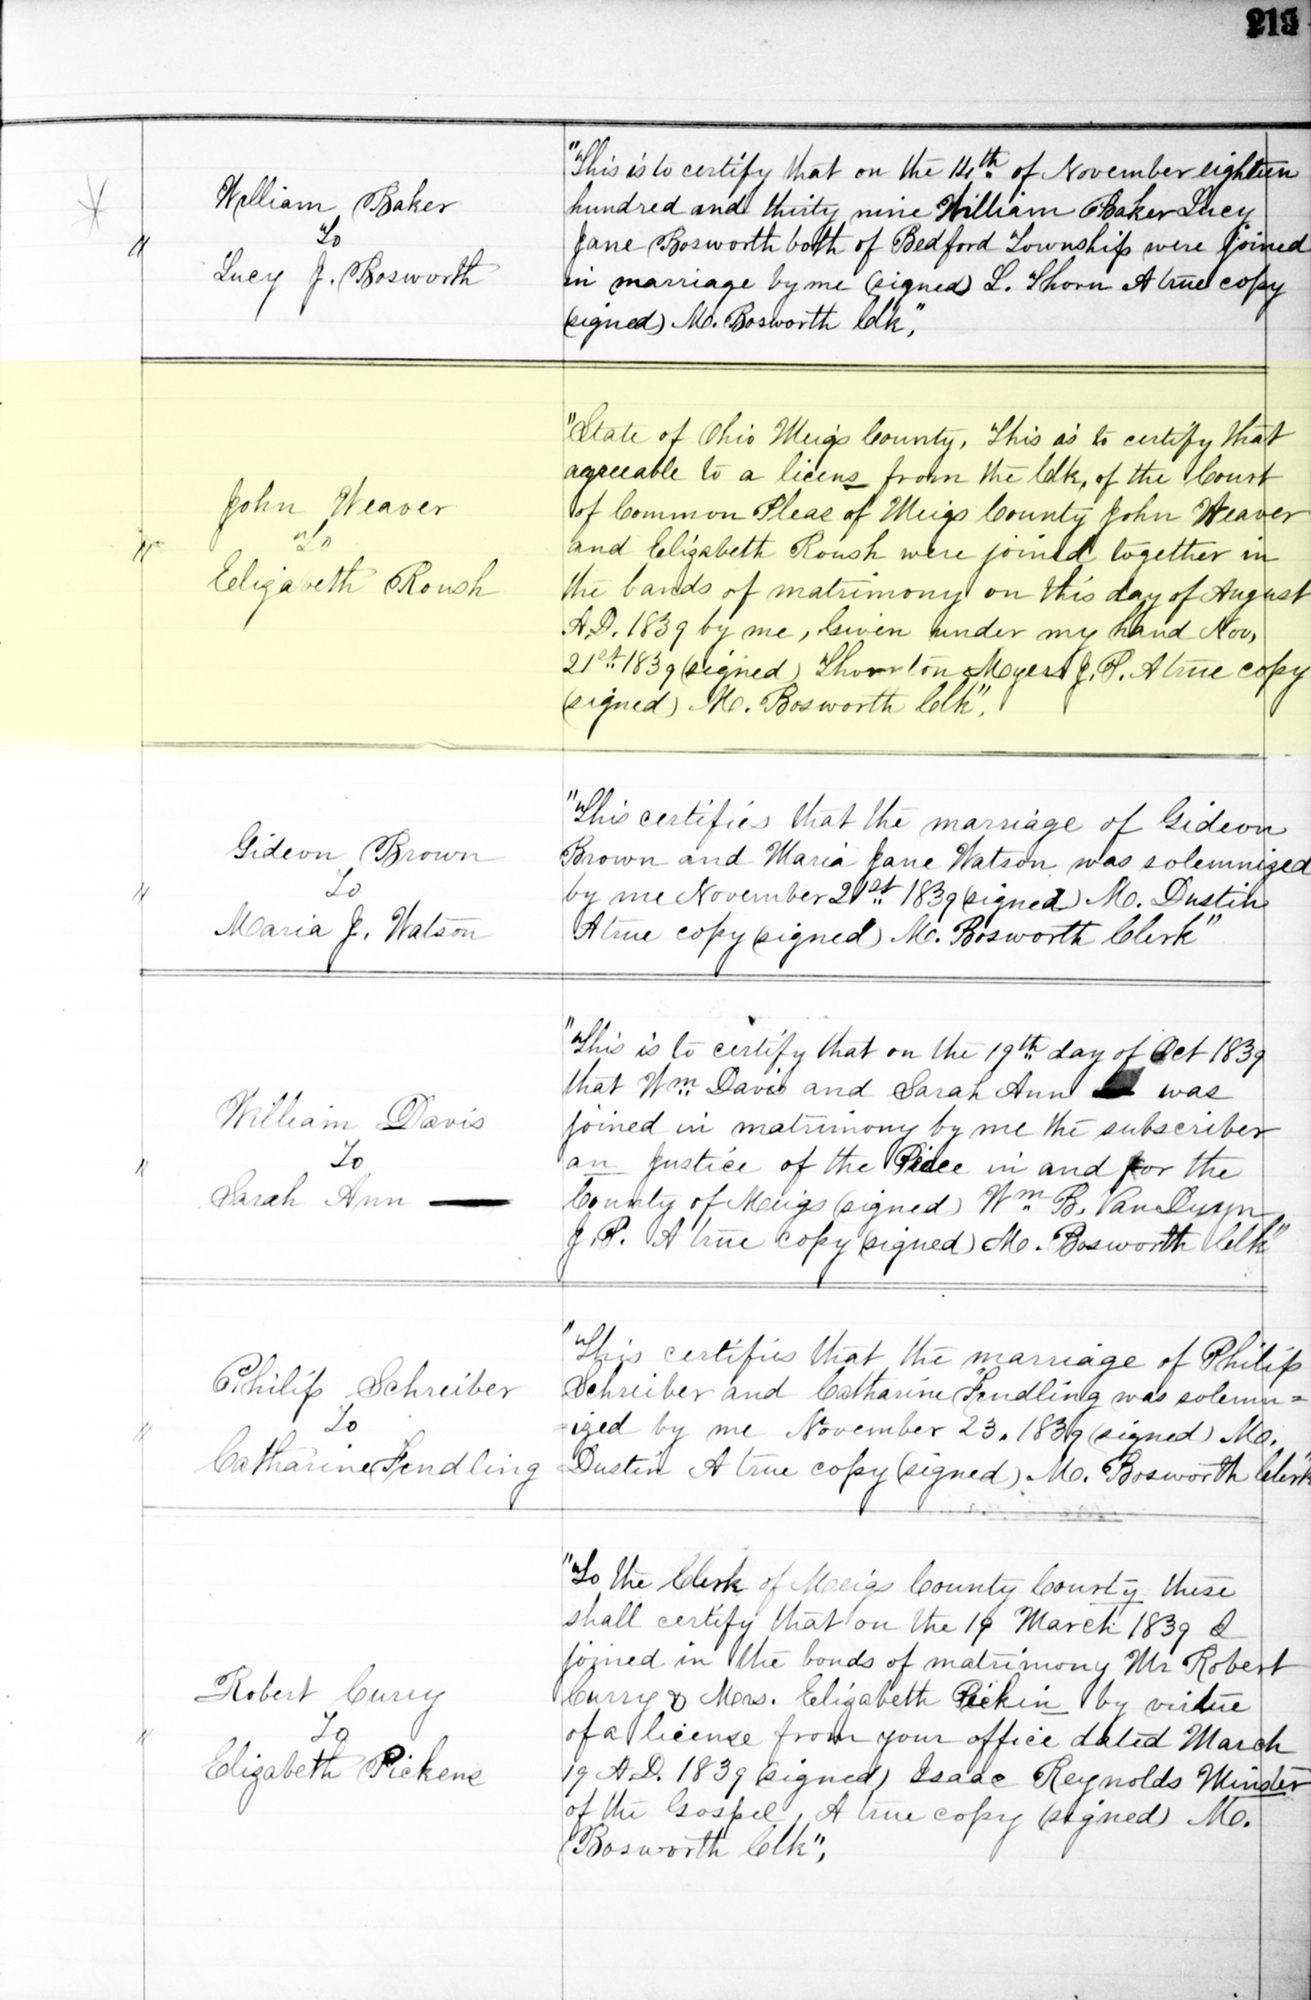 213
William Baker
To
" Lucy J. Bosworth
"This is to certify that on the 14th of November eighteen
hundred and thirty nine William Baker Lucy
Jane Bosworth both of Bedford Township were joined
in marriage by me (signed) L. Thorn A true copy
(signed) M. Bosworth Clk".
John Weaver
" To
Elizabeth Roush
"State of Ohio Meigs County, This is to certify that
agreeable to a licens from the Clk, of the Court
of Common Pleas of Meigs County John Weaver
and Elizabeth Roush were joined together in
the bands of matrimony on this day of August
A.D. 1839 by me, Given under my hand Nov,
21st 1839 (signed) Thornton Myers J.P. A true copy
(signed) M. Bosworth Clk".
Gideon Brown
" To
Maria J. Watson
"This certifies that the marriage of Gideon
Brown and Maria Jane Watson was solemnized
by me November 21st 1839 (signed) M. Dustin
A true copy (signed) M. Bosworth Clerk"
William Davis
" To
Sarah Ann
"This is to certify that on the 19th day of Oct 1839
that Wm Davis and Sarah Ann was
joined in matrimony by me the subscriber
an Justice of the Piece in and for the
County of Meigs (signed) Wm B. VanDuyn
J.P. A true copy (signed) M. Bosworth Clk"
Philip Schreiber
" To
Catharine Fendling
"This certifies that the marriage of Philip
Schreiber and Catharine Fendling was solemn=
=ized by me November 23. 1839 (signed) M.
Dustin A true copy (signed) M. Bosworth Clerk"
Robert Curry
" To
Elizabeth Pickens
"To the Clerk of Meigs County County these
shall certify that on the 19 March 1839 I
joined in the bonds of matrimony Mr Robert
Curry & Mrs. Elizabeth Pickin by virtue
of a license from your office dated March
19 A.D. 1839 (signed) Isaac Reynolds Minster
of the Gospel, A true copy (signed) M.
Bosworth Clk".